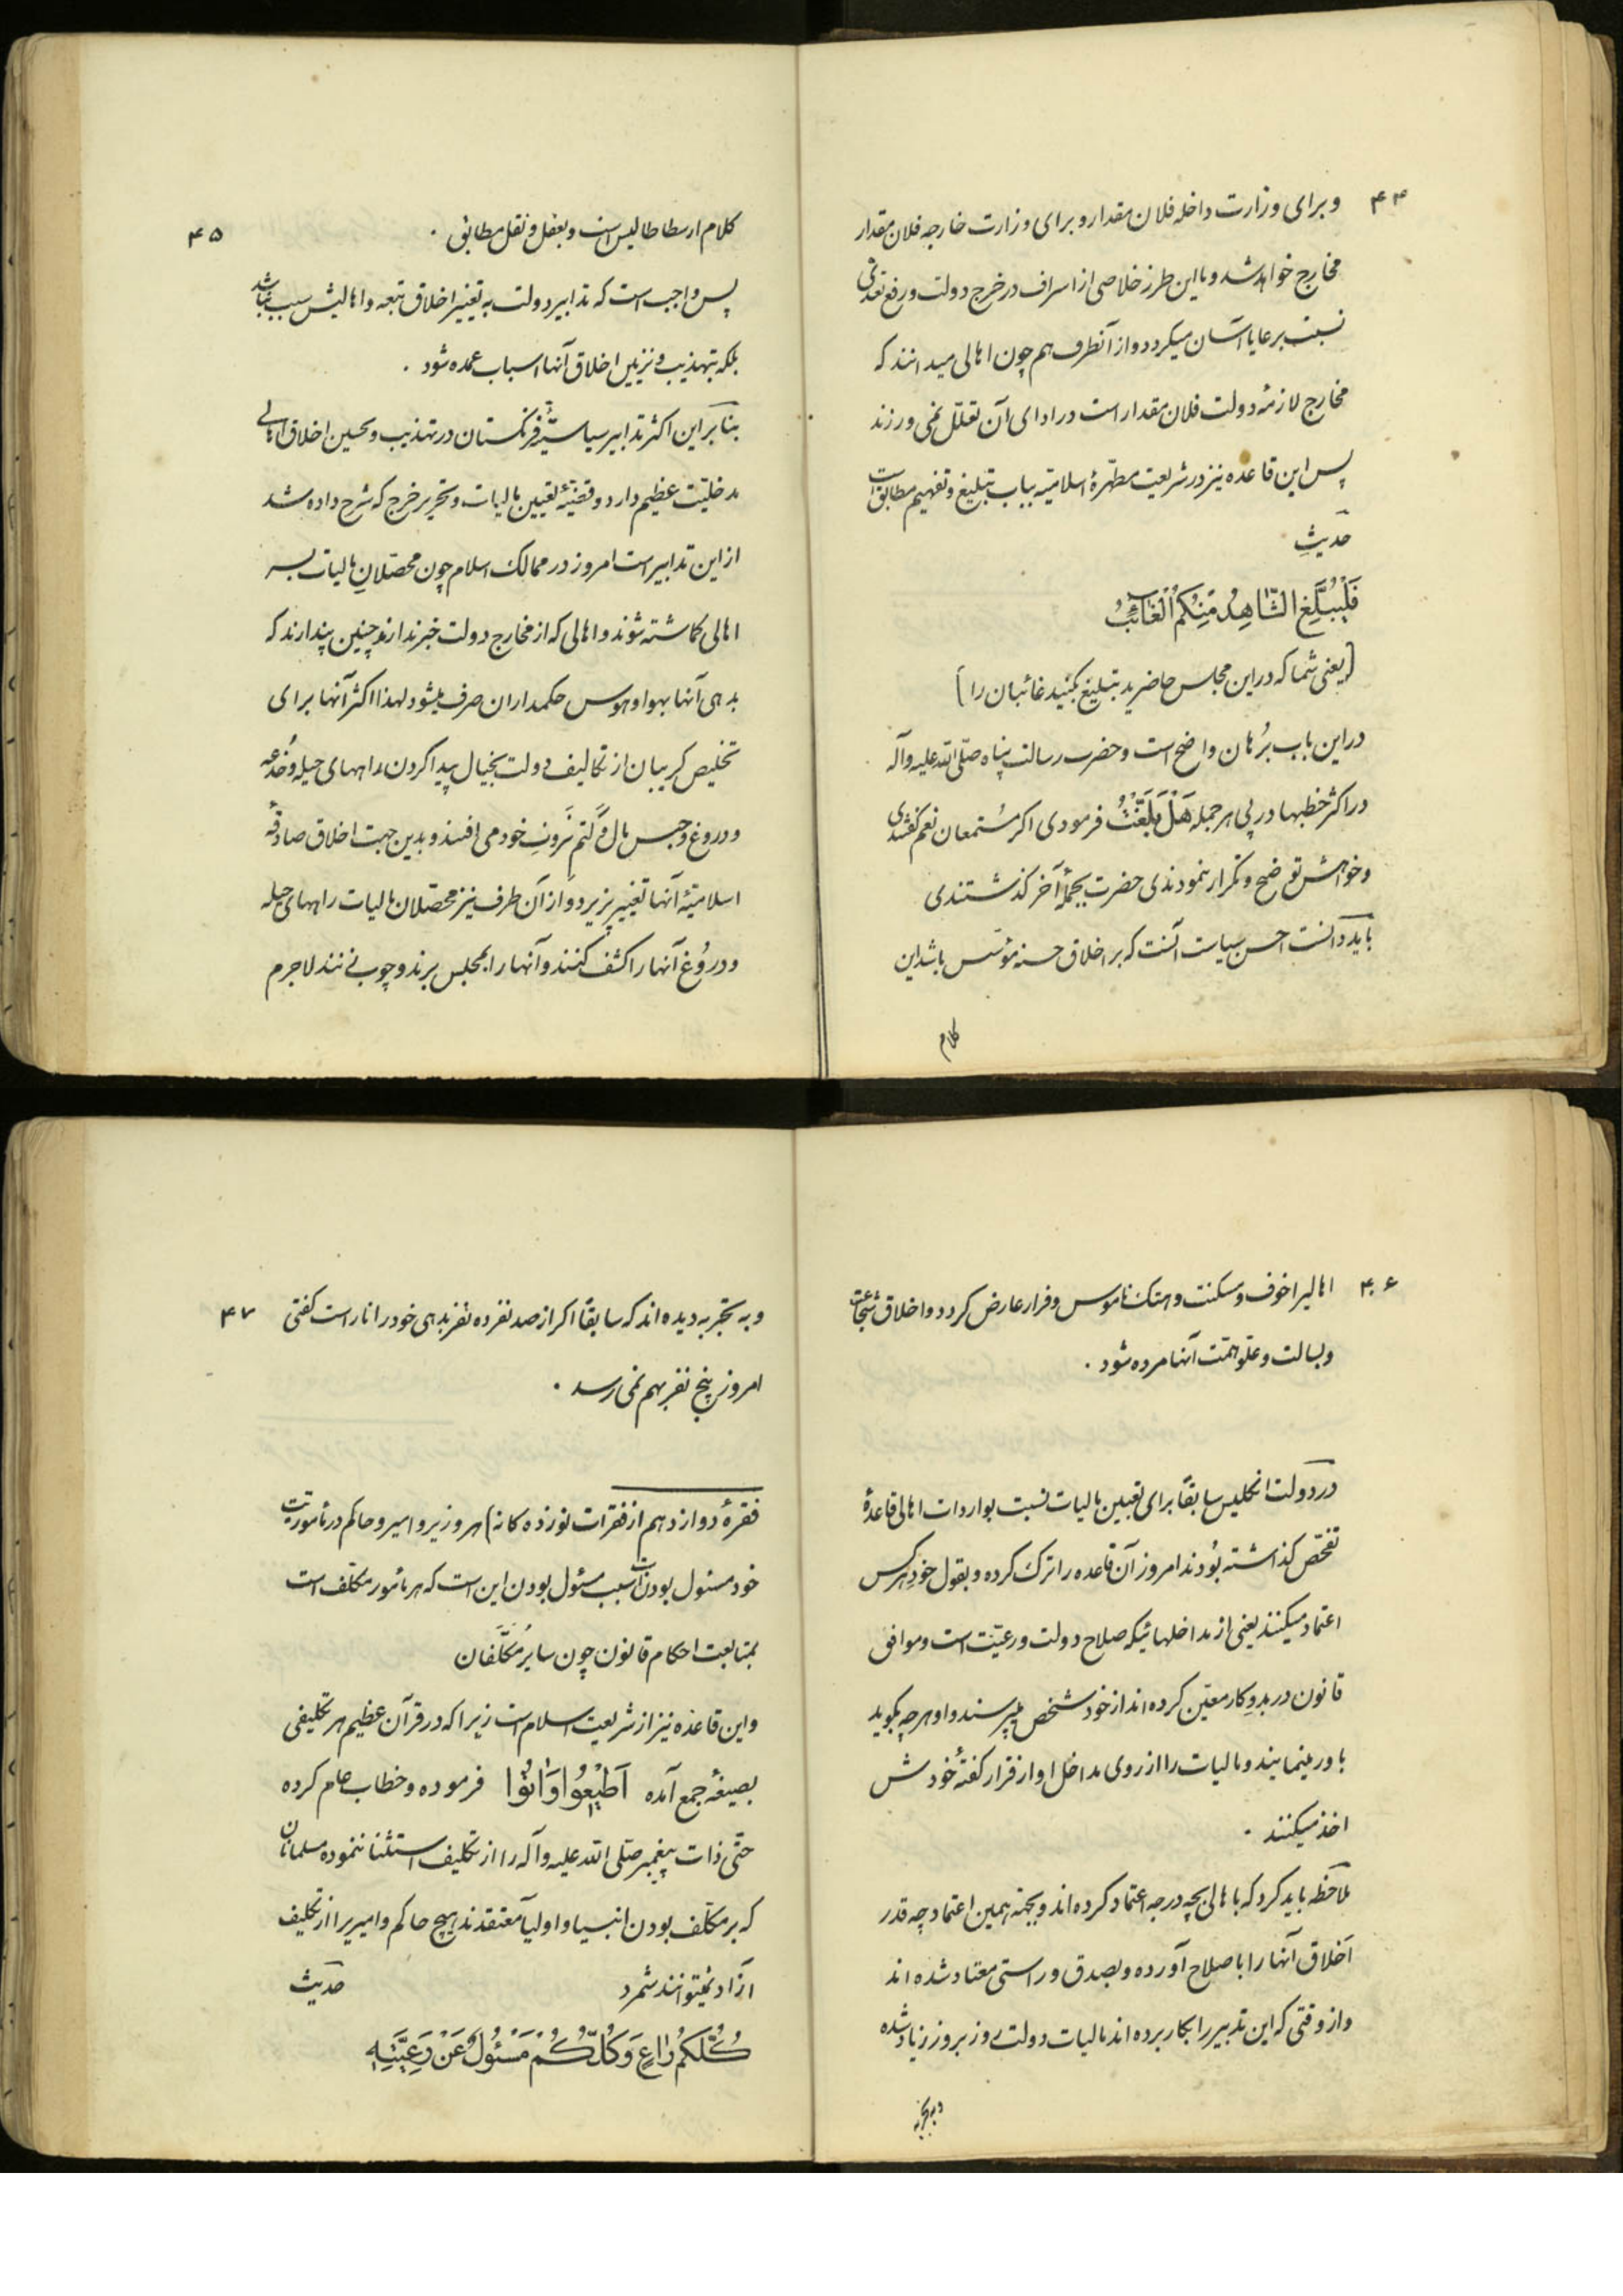 ۴۴
و برای وزارت داخله فلان مقدار و برای وزارت خارجه فلان مقدار
مخارج خواهد شد و با این طرز خلاصی از اسراف در خرج دولت و رفع تعدّی
نسبت بر عایا آسان میکردد و از آنطرف هم چون اهالی میدانند که
مخارج لازمهٔ دولت فلان مقدار است در ادای آن تعلّل نمی ورزند
پس این قاعده نیز در شریعت مطهّرهٔ اسلامیّه بباب تبلیغ و تفهیم مطابق است
حدیث
فَلْیُبَلِّغِ الشّاهِدُ مِنْکُمُ الْغائِبُ
[یعنی شما که در این مجلس حاضرید تبلیغ بکنید غائبان را]
در این باب بُرهان واضح است و حضرت رسالت پناه صلّی اللّه علیه و آله
در اکثر خطبها در پی هر جمله هَلْ بَلَّغْتُ فرمودی اکر مُستمعان نعم گفتندی
و خواهش توضیح و تکرار ننمودندی حضرت بجملهٔ آخر کذشتندی
باید دانست احسن سیاست آنست که بر اخلاق حسنه مؤسّس باشد این
کلام
۴۵
کلام ارسطاطالیس است و بعقل و نقل مطابق .
پس واجب است که تدابیر دولت به تغییر اخلاق تبعه و اهالیش سبب نباشد
بلکه بتهذیب و تزیین اخلاق آنها اسباب عمده شود .
بنابر این اکثر تدابیر سیاسیّهٔ فرنکستان در تهذیب و تحسین اخلاق اهالی
مدخلیّت عظیم دارد و قضیّهٔ تعیین مالیات و تحریر خرج که شرح داده شد
از این تدابیر است امروز در ممالک اسلام چون محصّلان مالیات بسر
اهالی کماشته شوند و اهالی که از مخارج دولت خبر ندارند چنین پندارند که
بدهی آنها بهوا و هوس حکمداران صرف میشود لهذا اکثر آنها برای
تخلیص کریبان از تکالیف دولت بخیال پیدا کردن راههای حیله و خُدعه
و دروغ و حبس مال و کَتْم ثروتِ خود می افتند و بدین جهت اخلاق صادقهٔ
اسلامیّهٔ آنها تغییر پزیرد و از آن طرف نیز محصّلان مالیات راههای حیله
و دروُغ آنها را کشف کنند و آنها را بمجلس برند و چوب زنند لاجرم
۴۶
اهالیرا خوف و مسکنت و هتک ناموس و فرار عارض کردد و اخلاق شجاعت
و بسالت و علوّ همّت آنها مرده شود .
در دولت انکلیس سابقاً برای تعیین مالیات نسبت بواردات اهالی قاعدهٔ
تفحّص کذاشته بُودند امروز آن قاعده را ترک کرده و بقول خودِ هر کس
اعتماد میکنند یعنی از مداخلهائیکه صلاح دولت و رعیّت است و موافق
قانون در بدو کار معیّن کرده اند از خود شخص میپرسند و او هر چه بکوید
باور مینمایند و مالیات را از روی مداخل او از قرار کفتهٔ خودش
اخذ میکنند .
ملاحظه باید کرد که باهالی بچه درجه اعتماد کرده اند و بجهة همین اعتماد چه قدر
اَخلاق آنها را باصلاح آورده و بصدق و راستی معتاد شده اند
و از وقتی که این تدبیر را بکار برده اند مالیات دولت روز بروز زیاد شده
و به تجربه
۴۷
و به تجربه دیده اند که سابقاً اکر از صد نفر ده نفر بدهی خود را ناراست کفتی
امروز پنج نفر بهم نمی رسد .
فقرهٔ دوازدهم از فقرات نوزده کانه) هر وزیر و امیر و حاکم در مأموریّت
خود مسئول بودن است سبب مسئول بودن این است که هر مأمور مکلّف است
بمتابعت احکام قانون چون سایر مُکلَّفان
و این قاعده نیز از شریعت اسلام است زیرا که در قرآن عظیم هر تکلیفی
بصیغهٔ جمع آمده اَطیعُوا وَ اتُوا فرموده و خطاب عام کرده
حتّی ذات پیغمبر صلّی اللّه علیه و آله را از تکلیف استثنا ننموده مسلمانان
که بر مکلّف بودن انبیا و اولیا معتقدند هیچ حاکم و امیریرا از تکلیف
آزاد نمیتوانند شمرد حدیث
کُلُّکُمْ راعٍ وَ کُلُّکُمْ مَسْئُولٌ عَنْ رَعِیَّتِهِ